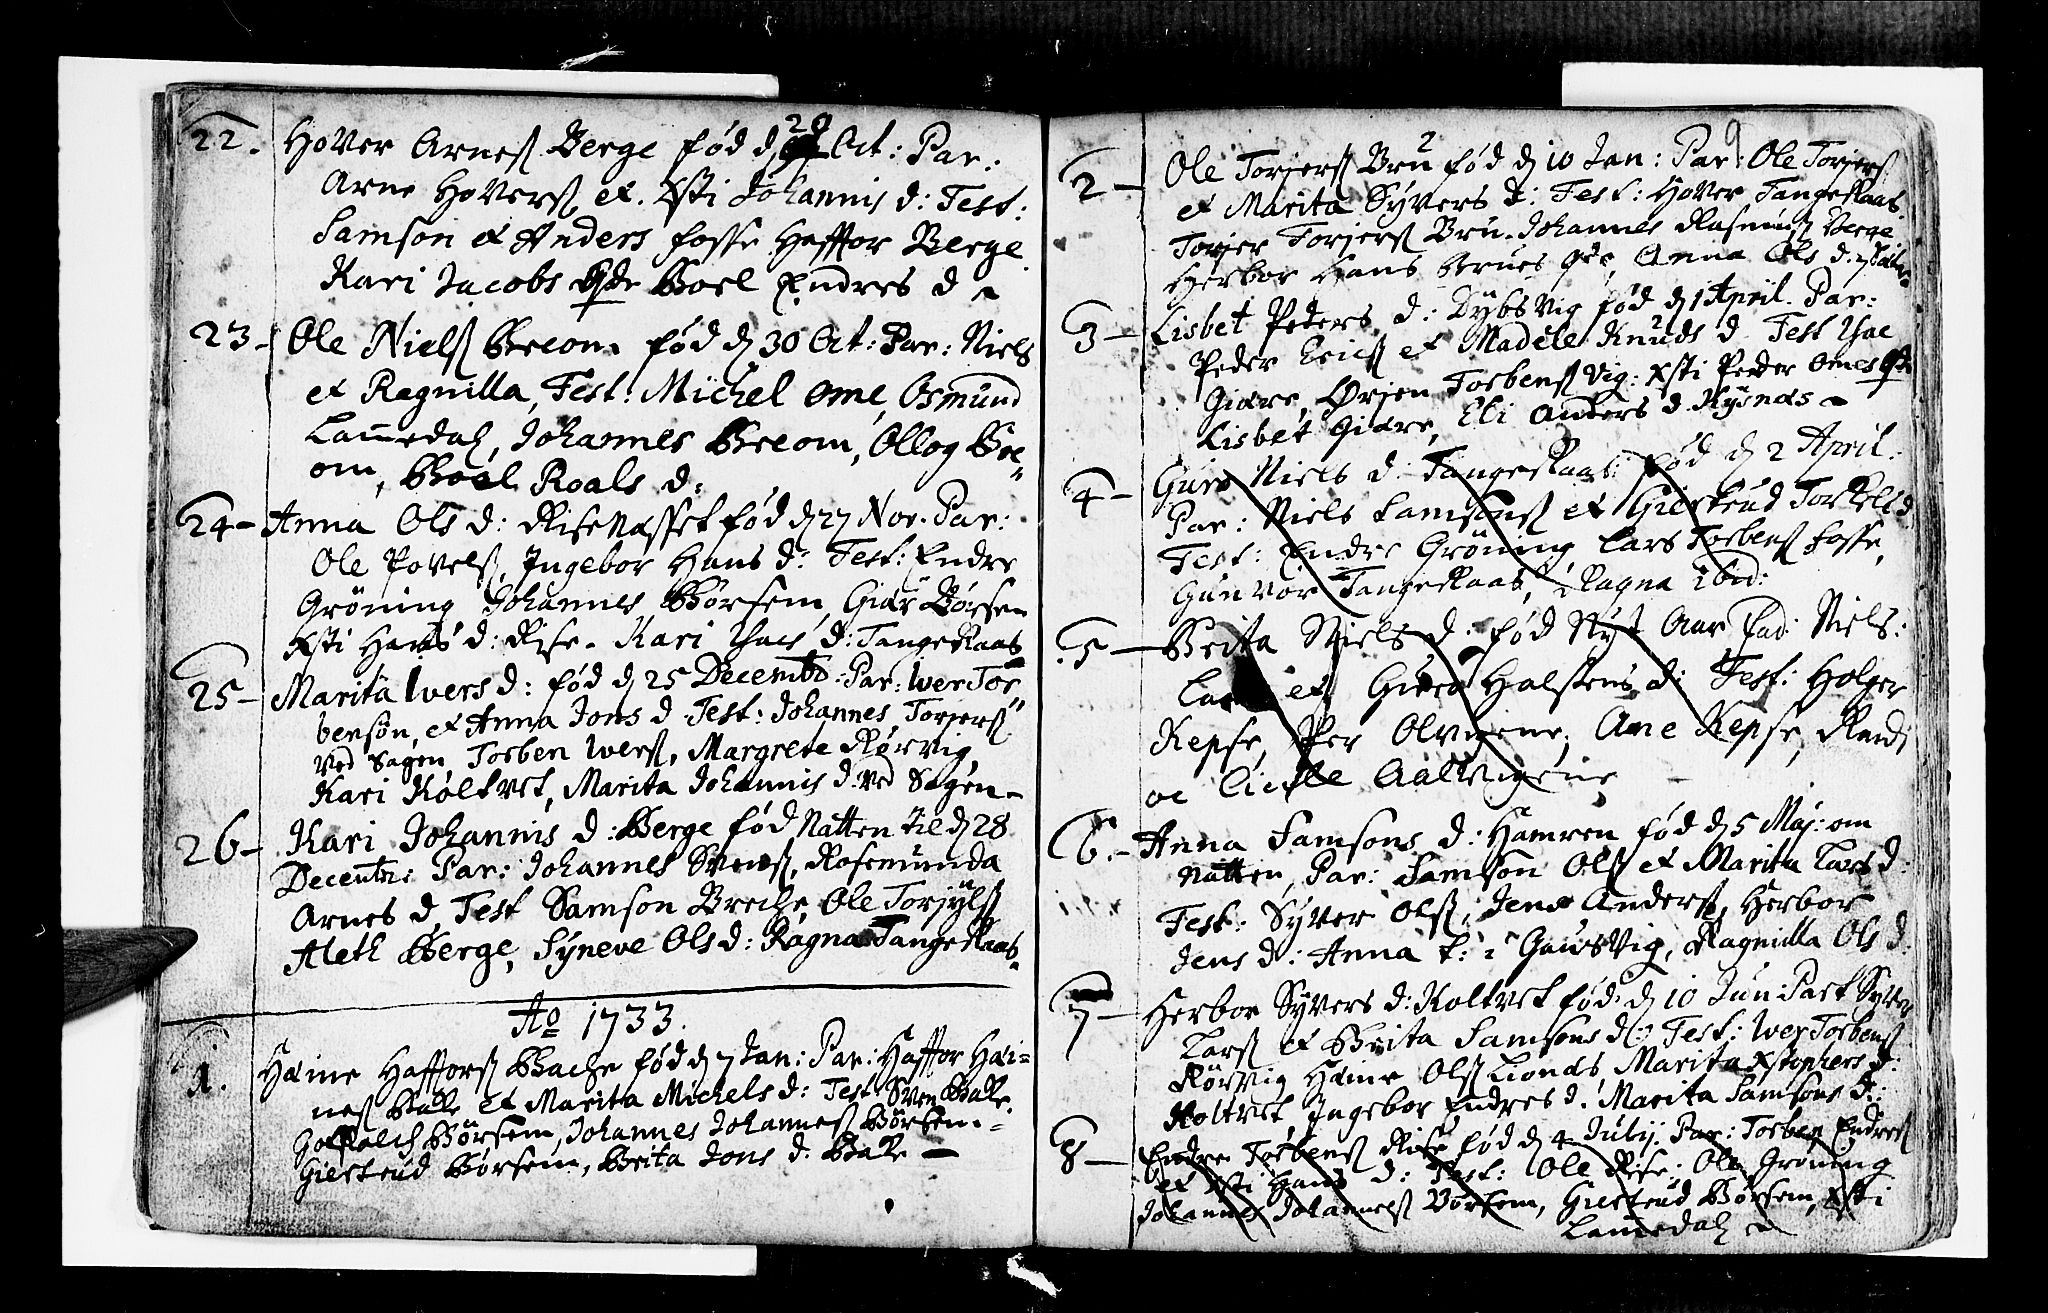 22. Hover Arnes Berge fød d 28 Oct: Par:
Arne Hovers, et. Xsti Johannis d: Test:
Samson et Anders Fosse Haffor Berge
Kari Jacobs Boel Endres d
23- Ole Niels Breom fød d 30 Oct: Par: Niels
et Ragnilla, Test: Michel Ome, Osmund
Lammedal, Johannes Breom, Ollog Bre-
om, Boel Roals d:
24- Anna Ols d: Risenesset fød d 27 Nov. Par:
Ole Povels, Ingebor Hans d: Test: Endre
Grøning Johannes Børsem, Giær Børsem
Xsti Hans d: Rise. Kari d: Tangeraas
25- Marita Ivers d: fød d 25 Decembr: Par: Iver Tor
bensøn, et Anna Jons d Test: Johannes Torjers
ved Sagen, Torben Ivers, Margrete Rørvig,
Kari Koltvet, Marita Johannis d. ved Sagen-
26- Kari Johannis d: Berge fød Natten til d 28
Decembr: Par: Johannes Svens, Rosemunda
Arnes d, Test Samson Breche, Ole Torjyls
Aleth Berge, Syneve Ols d: Ragna Tangeraas.
Ao 1733.
1. Haine Haffors Bache fød d 7 Jan: Par: Haffor Hai-
nes Bakke et Marita Michels d: Test Sven Bakke
Børsem, Johannes Johannes Børsem.
Giertrud Børsem, Brita Jons d. Bakke -
9
2- Ole Torjers Bru fød d 10 Jan: Par: Ole Torjers
et Marita Syvers d: Test: Hover Tangeraas
Torjer Torjers Bru. Johannes Rasmus Berge
Herbor Hans Brues Anna Ols d.
3- Lisbet Peders d: Dybsvig fød d 1 April. Par:
Peder Erics et Madele Knuds d Test
Giære, Ørjen Torbens Vig: Xsti Peder Omes
Lisbet Giære, Eli Anders d Rysnæs -
4- Guro Niels d Tangeraas: fød d 2 April.
Par: Niels Samsons et Giertrud Torkels d
Test: Endre Grøning, Lars Torbens Fosse,
Gunvor Tangeraas, Ragna ibid:
5- Brita Niels d: fød Nyt Aar Fad: Niels:
et Guro Halstens d: Test: Holger
Kepse, Per Olvigene, Ane Kepse, Randi
oc Cicille Aalvigene
6.- Anna Samsons d: Hamren fød d 5 Maj: om
Natten, Par: Samson Ols et Marita Lars d:
Test: Syver Ols, Jens Anders, Herbor
Jens d: Anna t: i Gausvig, Ragnilla Ols d:
7- Herbor Syvers d: Koltvet fød d 10 Jun: Part Syver
Lars et Brita Samsons d: Test: Iver Torbens
Rørvig Haine Ols Lionds Marita Xstophers d:
Koltvet, Ingebor Endres d. Marita Samsons d:
8- Endre Torbens Rise fød d 4 Julij. Par: Torben Endres
et Xsti Hans d: Test: Ole Rise: Ole Grøning
Johannes Johannes Børsem, Giertrud Børsem, Xsti
Lammedal